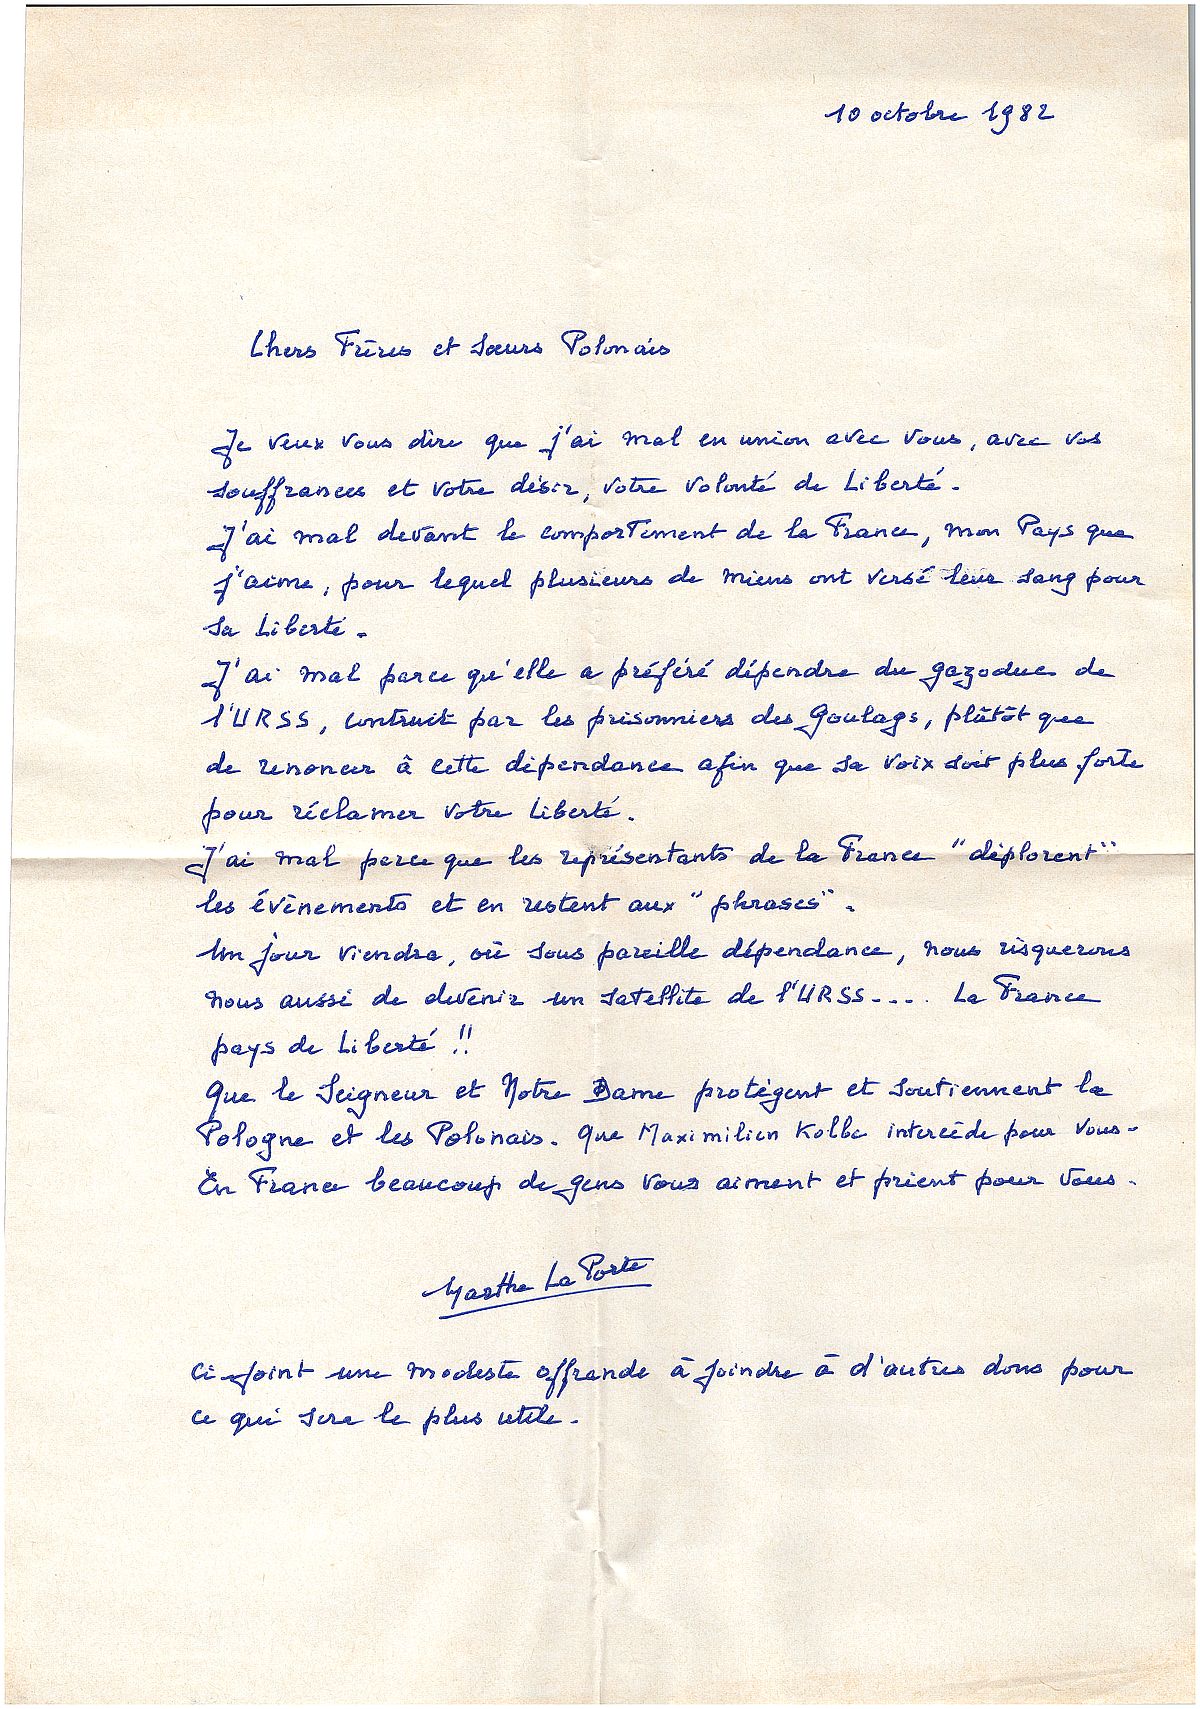 10 octobre 1982
Chers Frères et Sœurs Polonais
Je veux vous dire que j'ai mal en union avec vous, avec vos
souffrances et votre désir, votre volonté de Liberté.
J'ai mal devant le comportement de la France, mon Pays que
j'aime, pour lequel plusieurs de miens ont versé leur sang pour
sa Liberté.
J'ai mal parce qu'elle a préféré dépendre du gazoduc de
l'URSS, contruit par les prisonniers des Goulags, plûtôt que
de renoncer à cette dépendance afin que sa voix soit plus forte
pour réclamer votre Liberté.
J'ai mal parce que les représentants de la France "déplorent"
les évènements et en restent aux "phrases".
Un jour viendra, où sous pareille dépendance, nous risquerons
nous aussi de devenir un satellite de l'URSS.... La France
pays de Liberté !!
Que le Seigneur et Notre Dame protègent et soutiennent la
Pologne et les Polonais. Que Maximilien Kolbe intercède pour vous.
En France beaucoup de gens vous aiment et prient pour vous.
Marthe La Porte
Ci-joint une modeste offrande à joindre à d'autres dons pour
ce qui sera le plus utile.